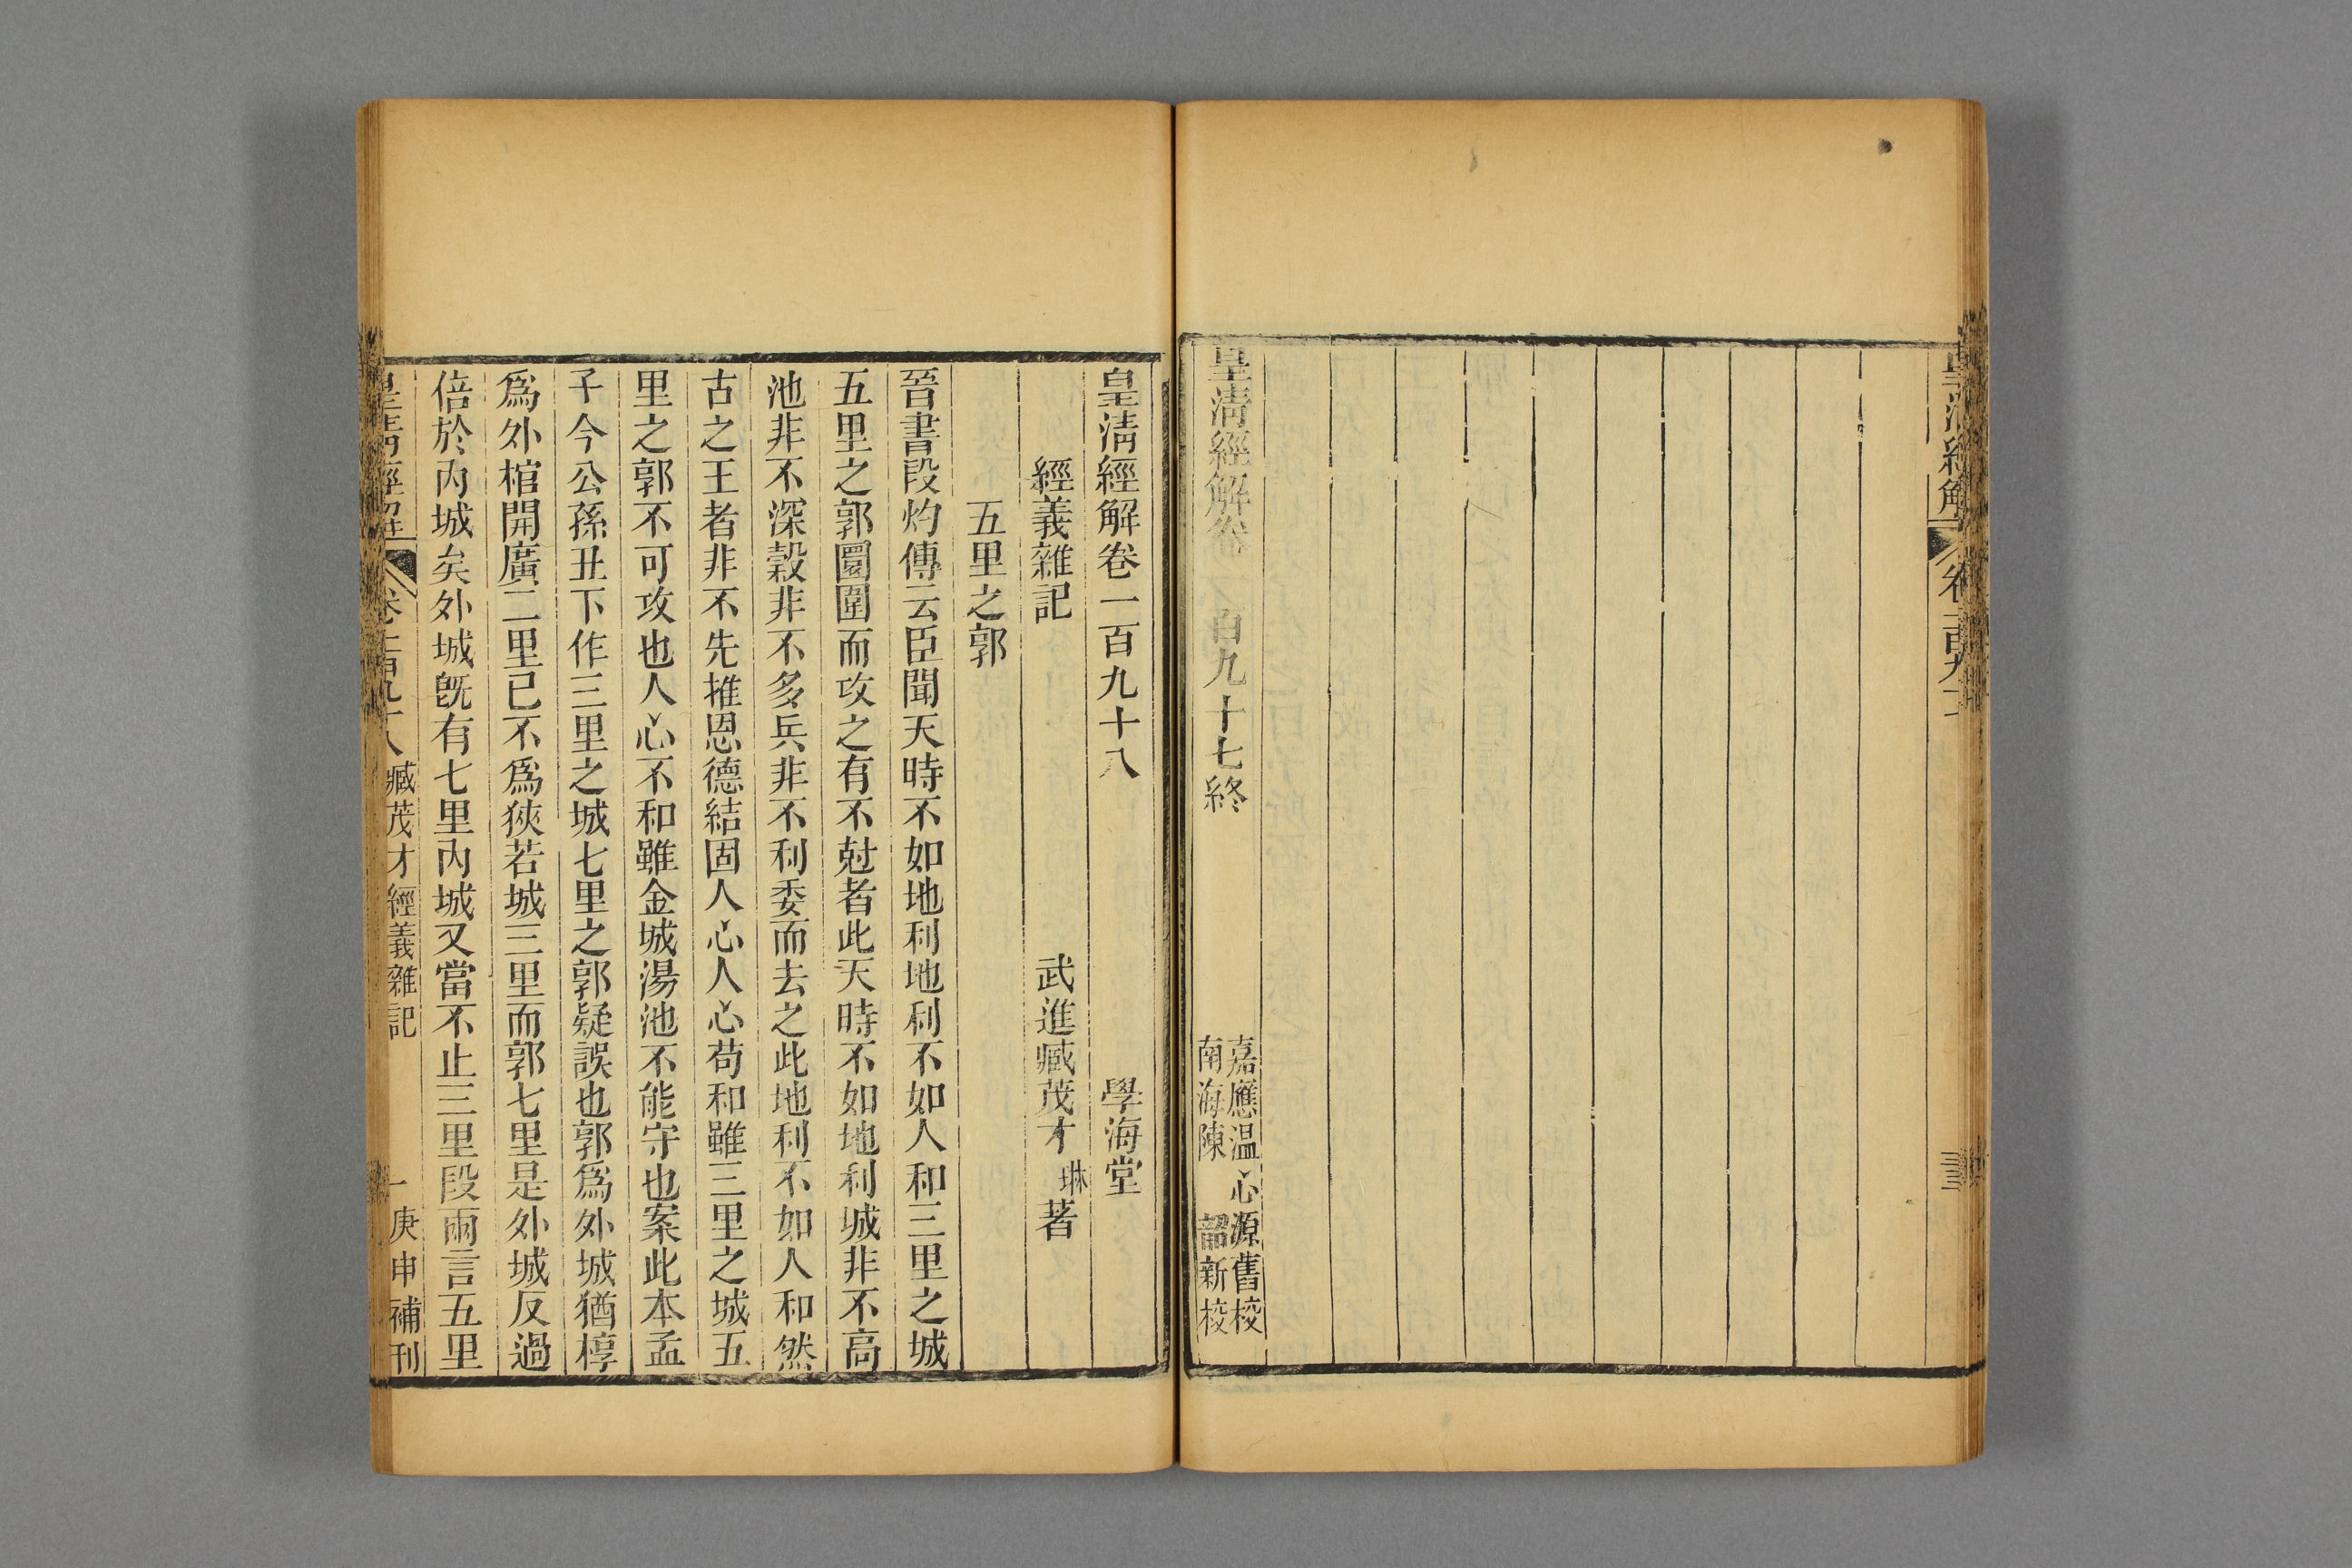 皇清經解
皇清經解卷
百九十七終
嘉應温心源舊校
南海陳韶新校
皇清經解卷一百九十八
學海堂
經義雜記
武進臧茂才琳著
五里之郭
晉書段灼傳云臣聞天時不如地利地利不如人和三里之城
五里之郭圜圍而攻之有不尅者此天時不如地利城非不高
池非不深穀非不多兵非不利委而去之此地利不如人和然
古之王者非不先推恩德結固人心人心苟和雖三里之城五
里之郭不可攻也人心不和雖金城湯池不能守也案此本孟
子今公孫丑下作三里之城七里之郭疑誤也郭爲外城猶椁
爲外棺開廣二里已不爲狹若城三里而郭七里是外城反過
倍於內城矣外城旣有七里內城又當不止三里段兩言五里
臧茂才經義雜記
一
庚申補刊